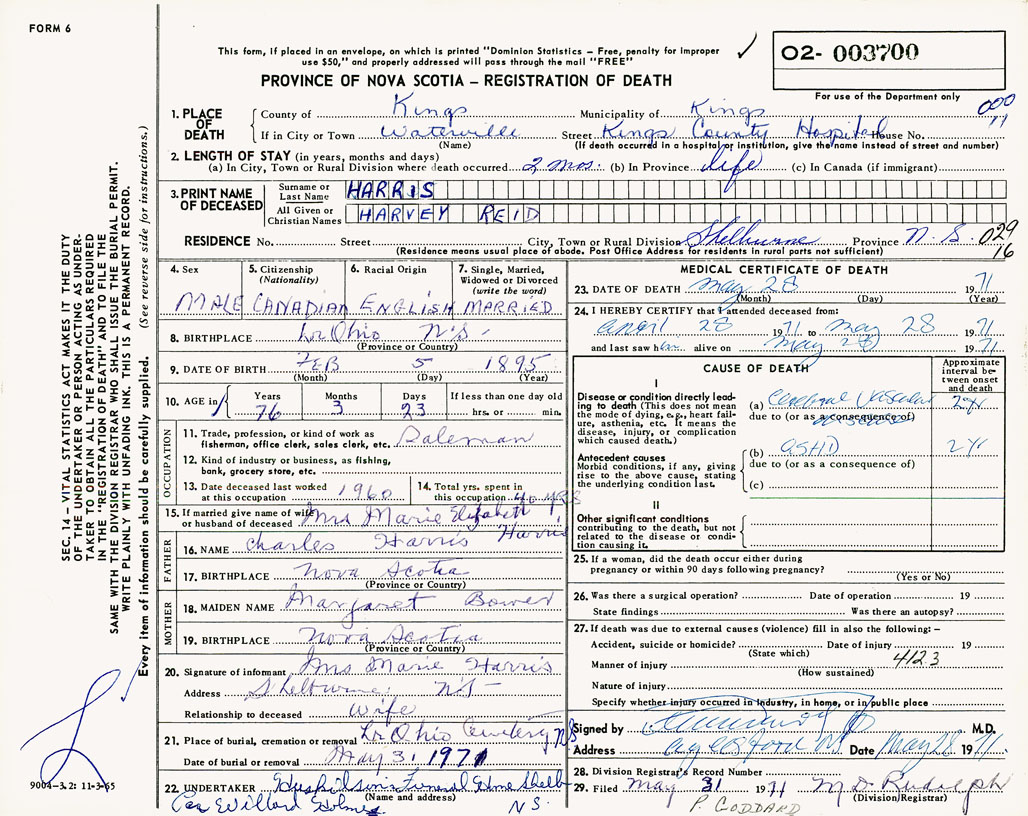 FORM 6
This form, if placed in an envelope, on which is printed "Dominion Statistics – Free, penalty for improper
use $50," and properly addressed will pass through the mail "FREE"
PROVINCE OF NOVA SCOTIA – REGISTRATION OF DEATH
O2- 003700
For use of the Department only
000
11
1. PLACE OF DEATH
County of Kings Municipality of Kings
If in City or Town Waterville Street Kings County Hospital House No.
(Name) (If death occurred in a hospital or institution, give the name instead of street and number)
2. LENGTH OF STAY (in years, months and days)
(a) In City, Town or Rural Division where death occurred 2 mos. (b) In Province life (c) In Canada (if immigrant)
3. PRINT NAME OF DECEASED
Surname or Last Name HARRIS
All Given or Christian Names HARVEY REID
RESIDENCE No. Street City, Town or Rural Division Shelburne Province N.S. 029
(Residence means usual place of abode. Post Office Address for residents in rural parts not sufficient) 16
4. Sex MALE
5. Citizenship (Nationality) CANADIAN
6. Racial Origin ENGLISH
7. Single, Married, Widowed or Divorced (write the word) MARRIED
8. BIRTHPLACE Lr Ohio N.S.
(Province or Country)
9. DATE OF BIRTH FEB 5 1895
(Month) (Day) (Year)
10. AGE in Years 76 Months 3 Days 23 If less than one day old hrs. or min.
OCCUPATION
11. Trade, profession, or kind of work as
fisherman, office clerk, sales clerk, etc.
12. Kind of industry or business, as fishing,
bank, grocery store, etc.
13. Date deceased last worked
at this occupation 1960
14. Total yrs. spent in
this occupation 40 YRS
15. If married give name of wife
or husband of deceased Mrs Marie Elizabeth Harris
FATHER
16. NAME Charles Harris
17. BIRTHPLACE Nova Scotia
(Province or Country)
MOTHER
18. MAIDEN NAME Margaret Bower
19. BIRTHPLACE Nova Scotia
(Province or Country)
20. Signature of informant Mrs Marie Harris
Address Shelburne N.S.
Relationship to deceased wife
21. Place of burial, cremation or removal Lr Ohio Cemetery NS
Date of burial or removal May 31 1971
22. UNDERTAKER Funeral Home Shelb
(Name and address)
Per Willard Holmes N.S.
MEDICAL CERTIFICATE OF DEATH
23. DATE OF DEATH May 28 1971
(Month) (Day) (Year)
24. I HEREBY CERTIFY that I attended deceased from:
April 28 1971 to May 28 1971
and last saw him alive on May 28 1971
CAUSE OF DEATH
Approximate interval between onset and death
I
Disease or condition directly leading
to death (This does not mean
the mode of dying, e.g., heart failure,
asthenia, etc. It means the
disease, injury, or complication
which caused death.)
(a) Cerebral Vascular 2 yr
due to (or as a consequence of)
Antecedent causes
Morbid conditions, if any, giving
rise to the above cause, stating
the underlying condition last.
(b) ASHD 2 yr
due to (or as a consequence of)
(c)
II
Other significant conditions
contributing to the death, but not
related to the disease or condition
causing it.
25. If a woman, did the death occur either during
pregnancy or within 90 days following pregnancy?
(Yes or No)
26. Was there a surgical operation? Date of operation 19
State findings Was there an autopsy?
27. If death was due to external causes (violence) fill in also the following: –
Accident, suicide or homicide? Date of injury 19
(State which) 4123
Manner of injury
(How sustained)
Nature of injury
Specify whether injury occurred in industry, in home, or in public place
Signed by M.D.
Address Aylesford NS Date May 28 1971
28. Division Registrar's Record Number
29. Filed May 31 1971 M D Rudolph
(Division Registrar)
P. GODDARD
SEC. 14 – VITAL STATISTICS ACT MAKES IT THE DUTY
OF THE UNDERTAKER OR PERSON ACTING AS UNDER-
TAKER TO OBTAIN ALL THE PARTICULARS REQUIRED
IN THE "REGISTRATION OF DEATH" AND TO FILE THE
SAME WITH THE DIVISION REGISTRAR WHO SHALL ISSUE THE BURIAL PERMIT.
WRITE PLAINLY WITH UNFADING INK. THIS IS A PERMANENT RECORD.
Every item of information should be carefully supplied. (See reverse side for instructions.)
9004-3.2: 11-3-65